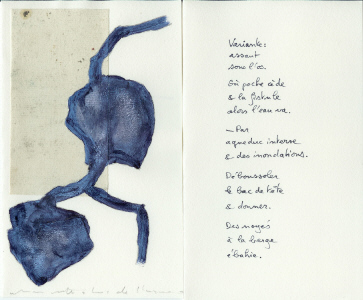 Variante :
assaut
sous l'os.
Où poche cède
& la fistule
alors l'eau va.
— Par
aqueduc interne
& des inondations.
Déboussoler
le bac de tête
& donner.
Des noyés
à la berge
ébahie.